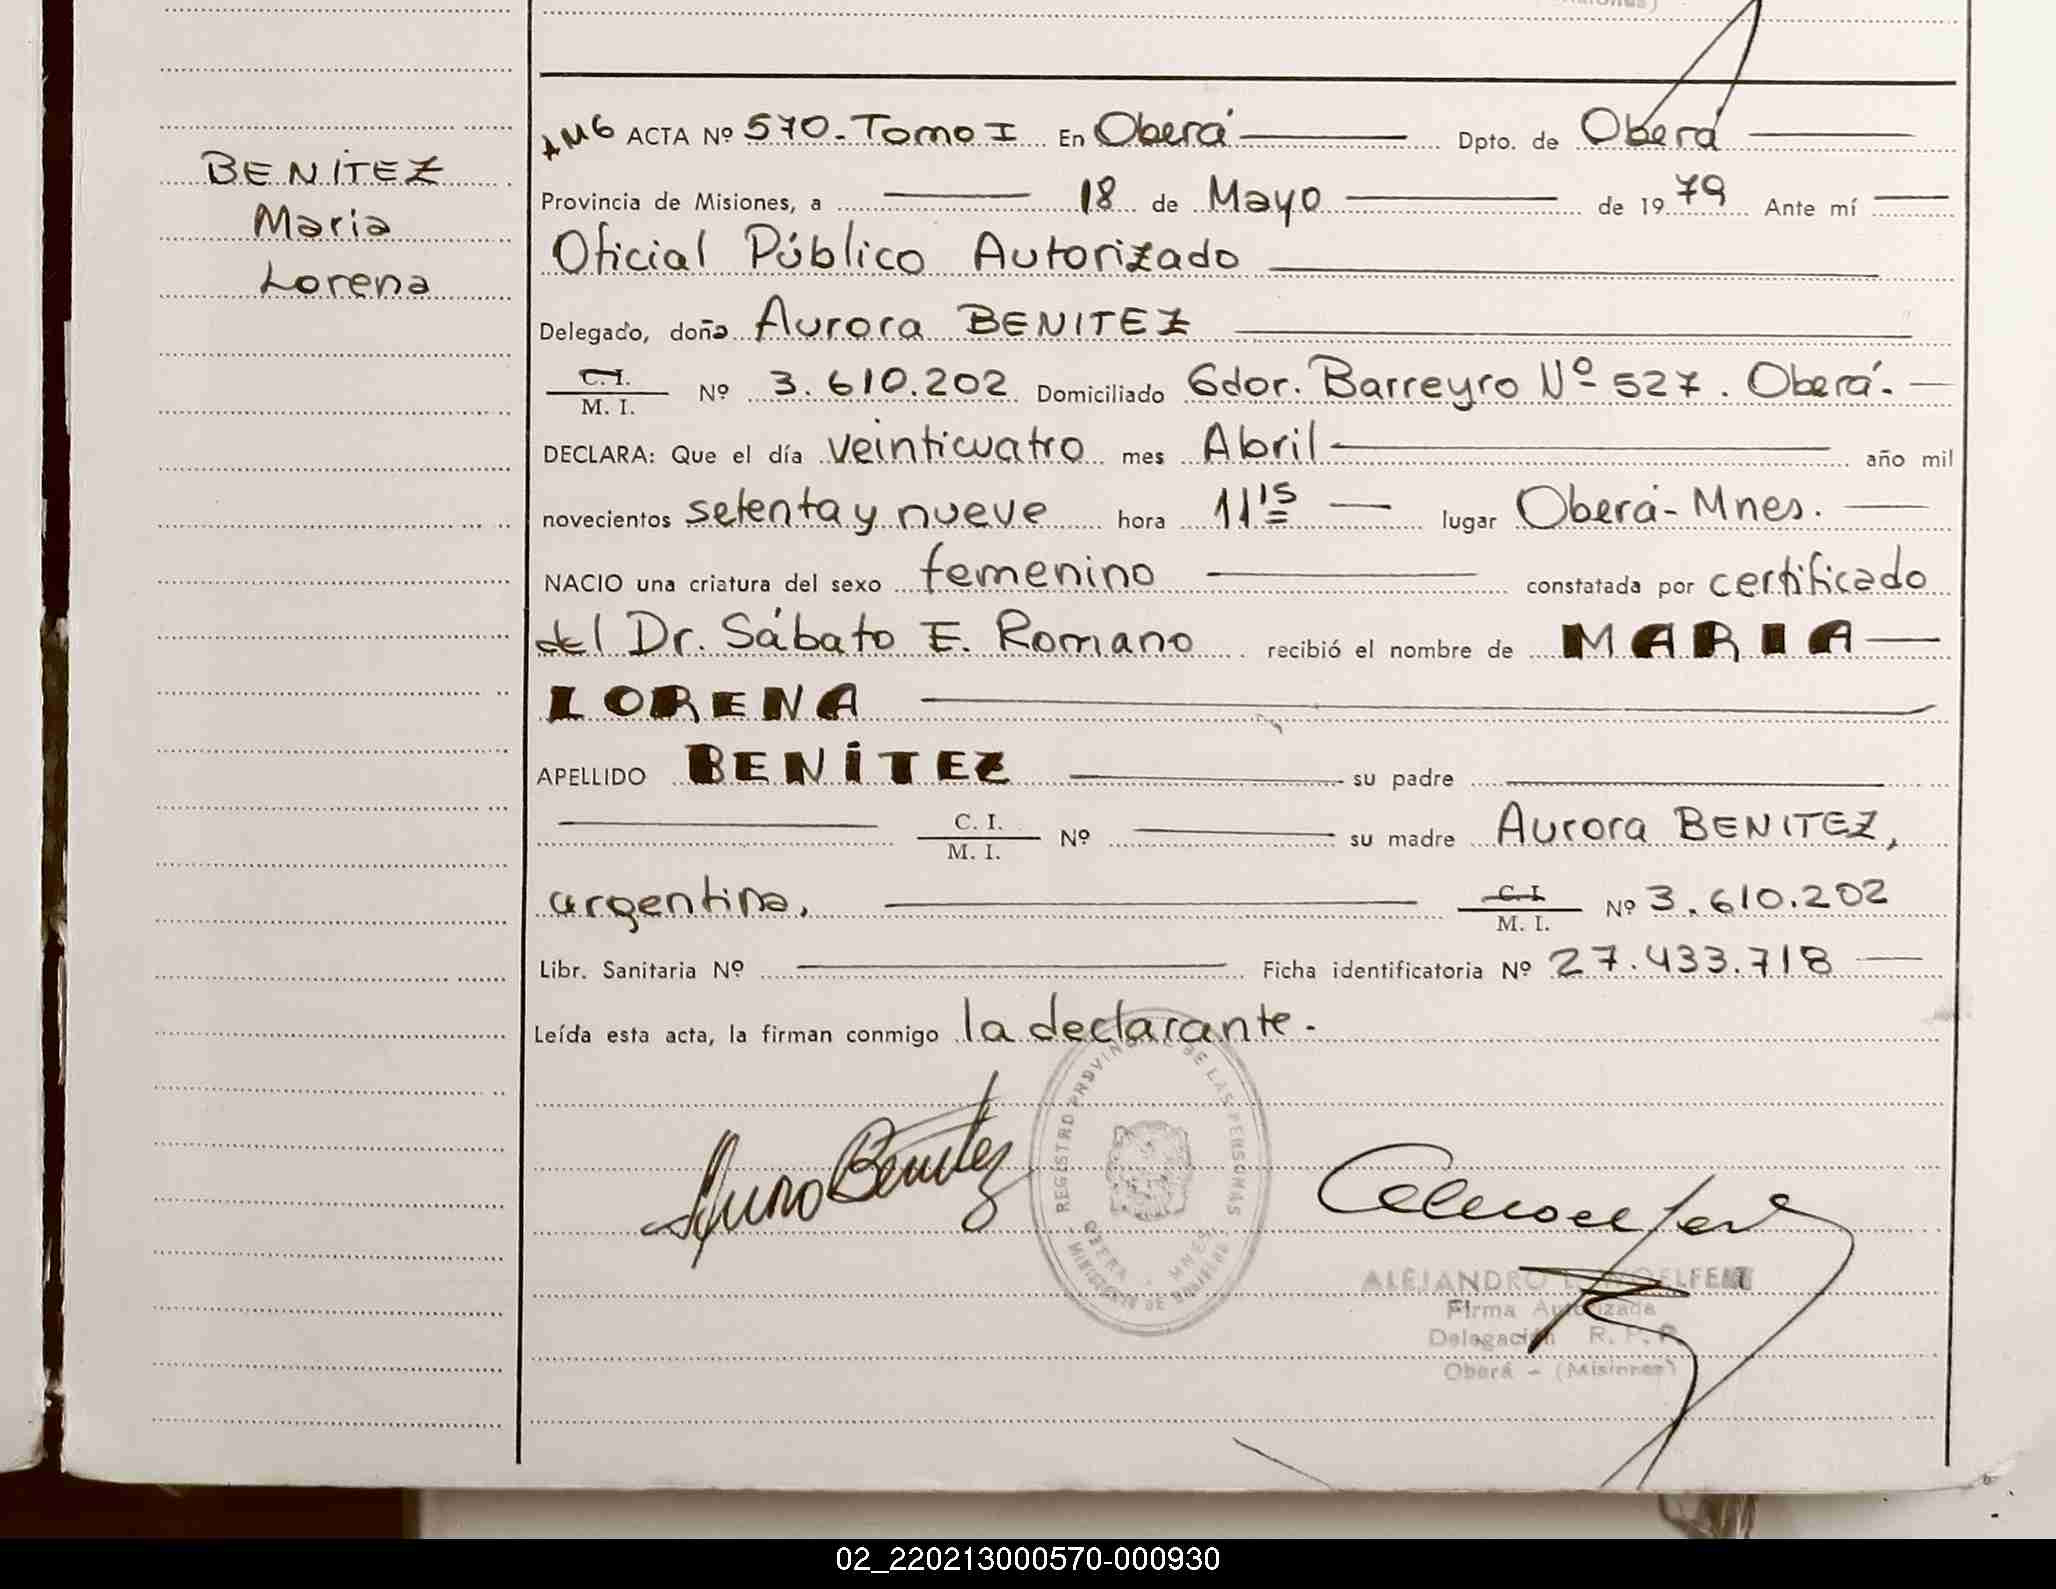 BENÍTEZ
Maria
Lorena
AMG ACTA Nº 570.-Tomo I En Oberá Dpto. de Oberá
Provincia de Misiones, a 18 de Mayo de 1979 Ante mí
Oficial Público Autorizado
Delegado, doña Aurora BENITEZ
C. I. / M. I. Nº 3.610.202 Domiciliado Gdor. Barreyro Nº 527. Oberá.-
DECLARA: Que el día veinticuatro mes Abril año mil
novecientos setenta y nueve hora 11 15 lugar Oberá-Mnes.
NACIO una criatura del sexo femenino constatada por certificado
del Dr. Sábato E. Romano recibió el nombre de MARIA
LORENA
APELLIDO BENÍTEZ su padre
C. I. / M. I. Nº su madre Aurora BENITEZ,
argentina, C. I. / M. I. Nº 3.610.202
Libr. Sanitaria Nº Ficha identificatoria Nº 27.433.718
Leída esta acta, la firman conmigo la declarante.-
REGISTRO PROVINCIAL DE LAS PERSONAS
OBERA - MNES
MINISTERIO DE GOBIERNO
Benitez
ALEJANDRO
Firma Autorizada
Delegación R. P. P.
Oberá - (Misiones)
02_220213000570-000930